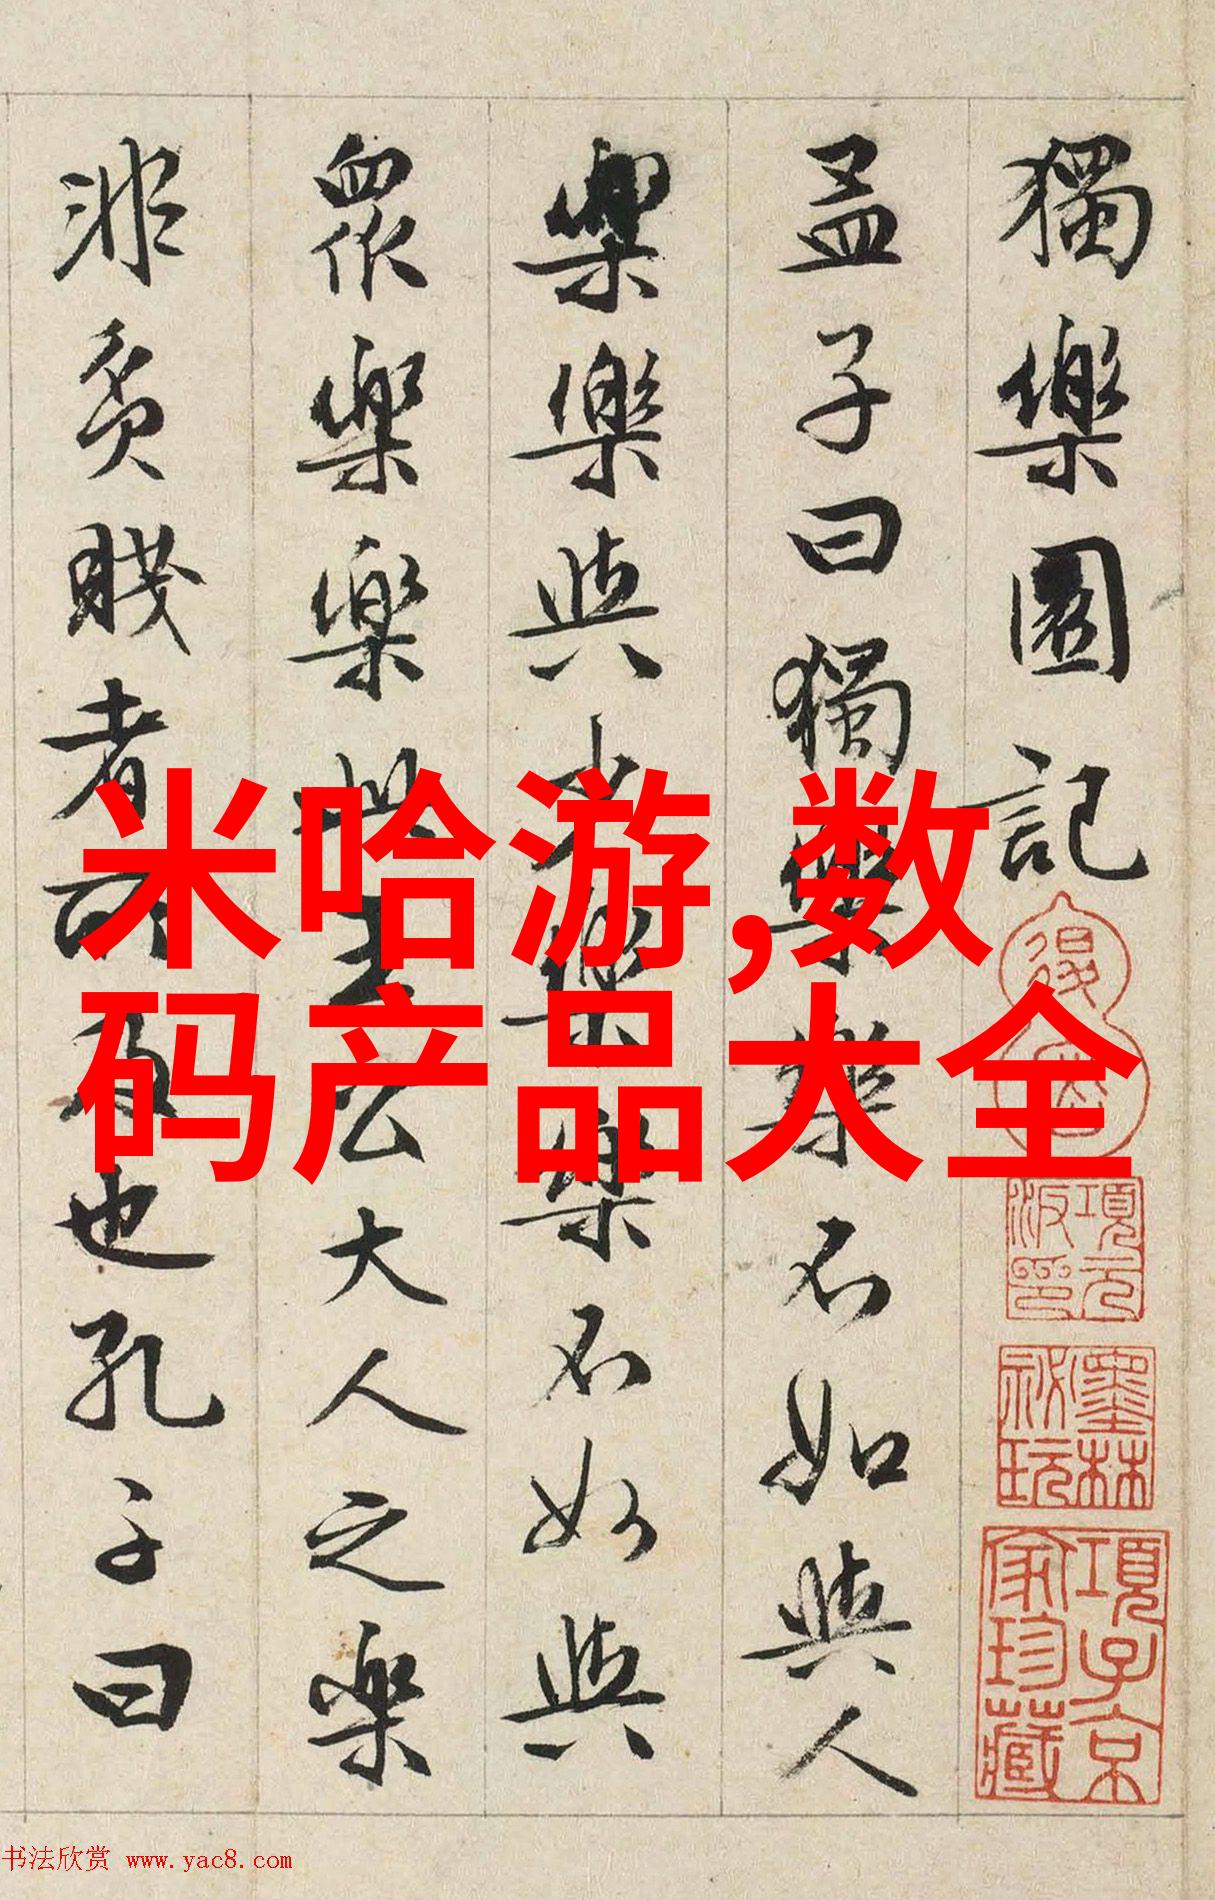 獨樂園記
孟子曰獨樂樂不如與人
樂樂與少樂樂不如與
眾樂樂此王公大人之樂
非貧賤者所及也孔子曰
米哈游,数
码产品大全
項元汴印
墨林祕玩
項子京家珍藏
书法欣赏 www.yac8.com